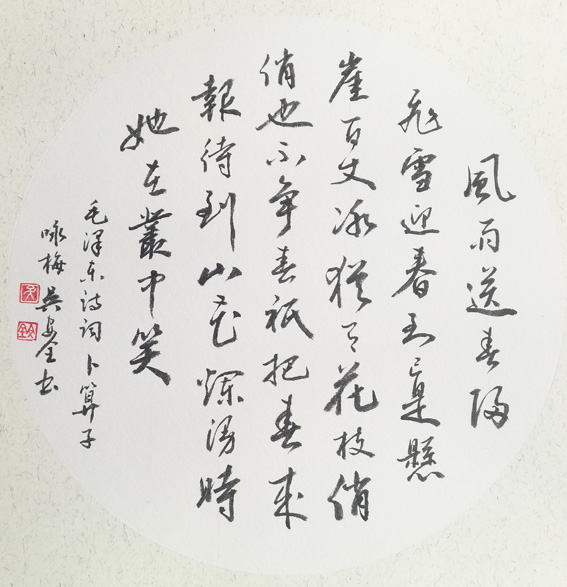 風雨送春歸
飛雪迎春到已是懸
崖百丈冰猶有花枝俏
俏也不爭春衹把春來
報待到山花爛漫時
她在叢中笑
毛澤東詩詞卜算子
咏梅 吳安全書